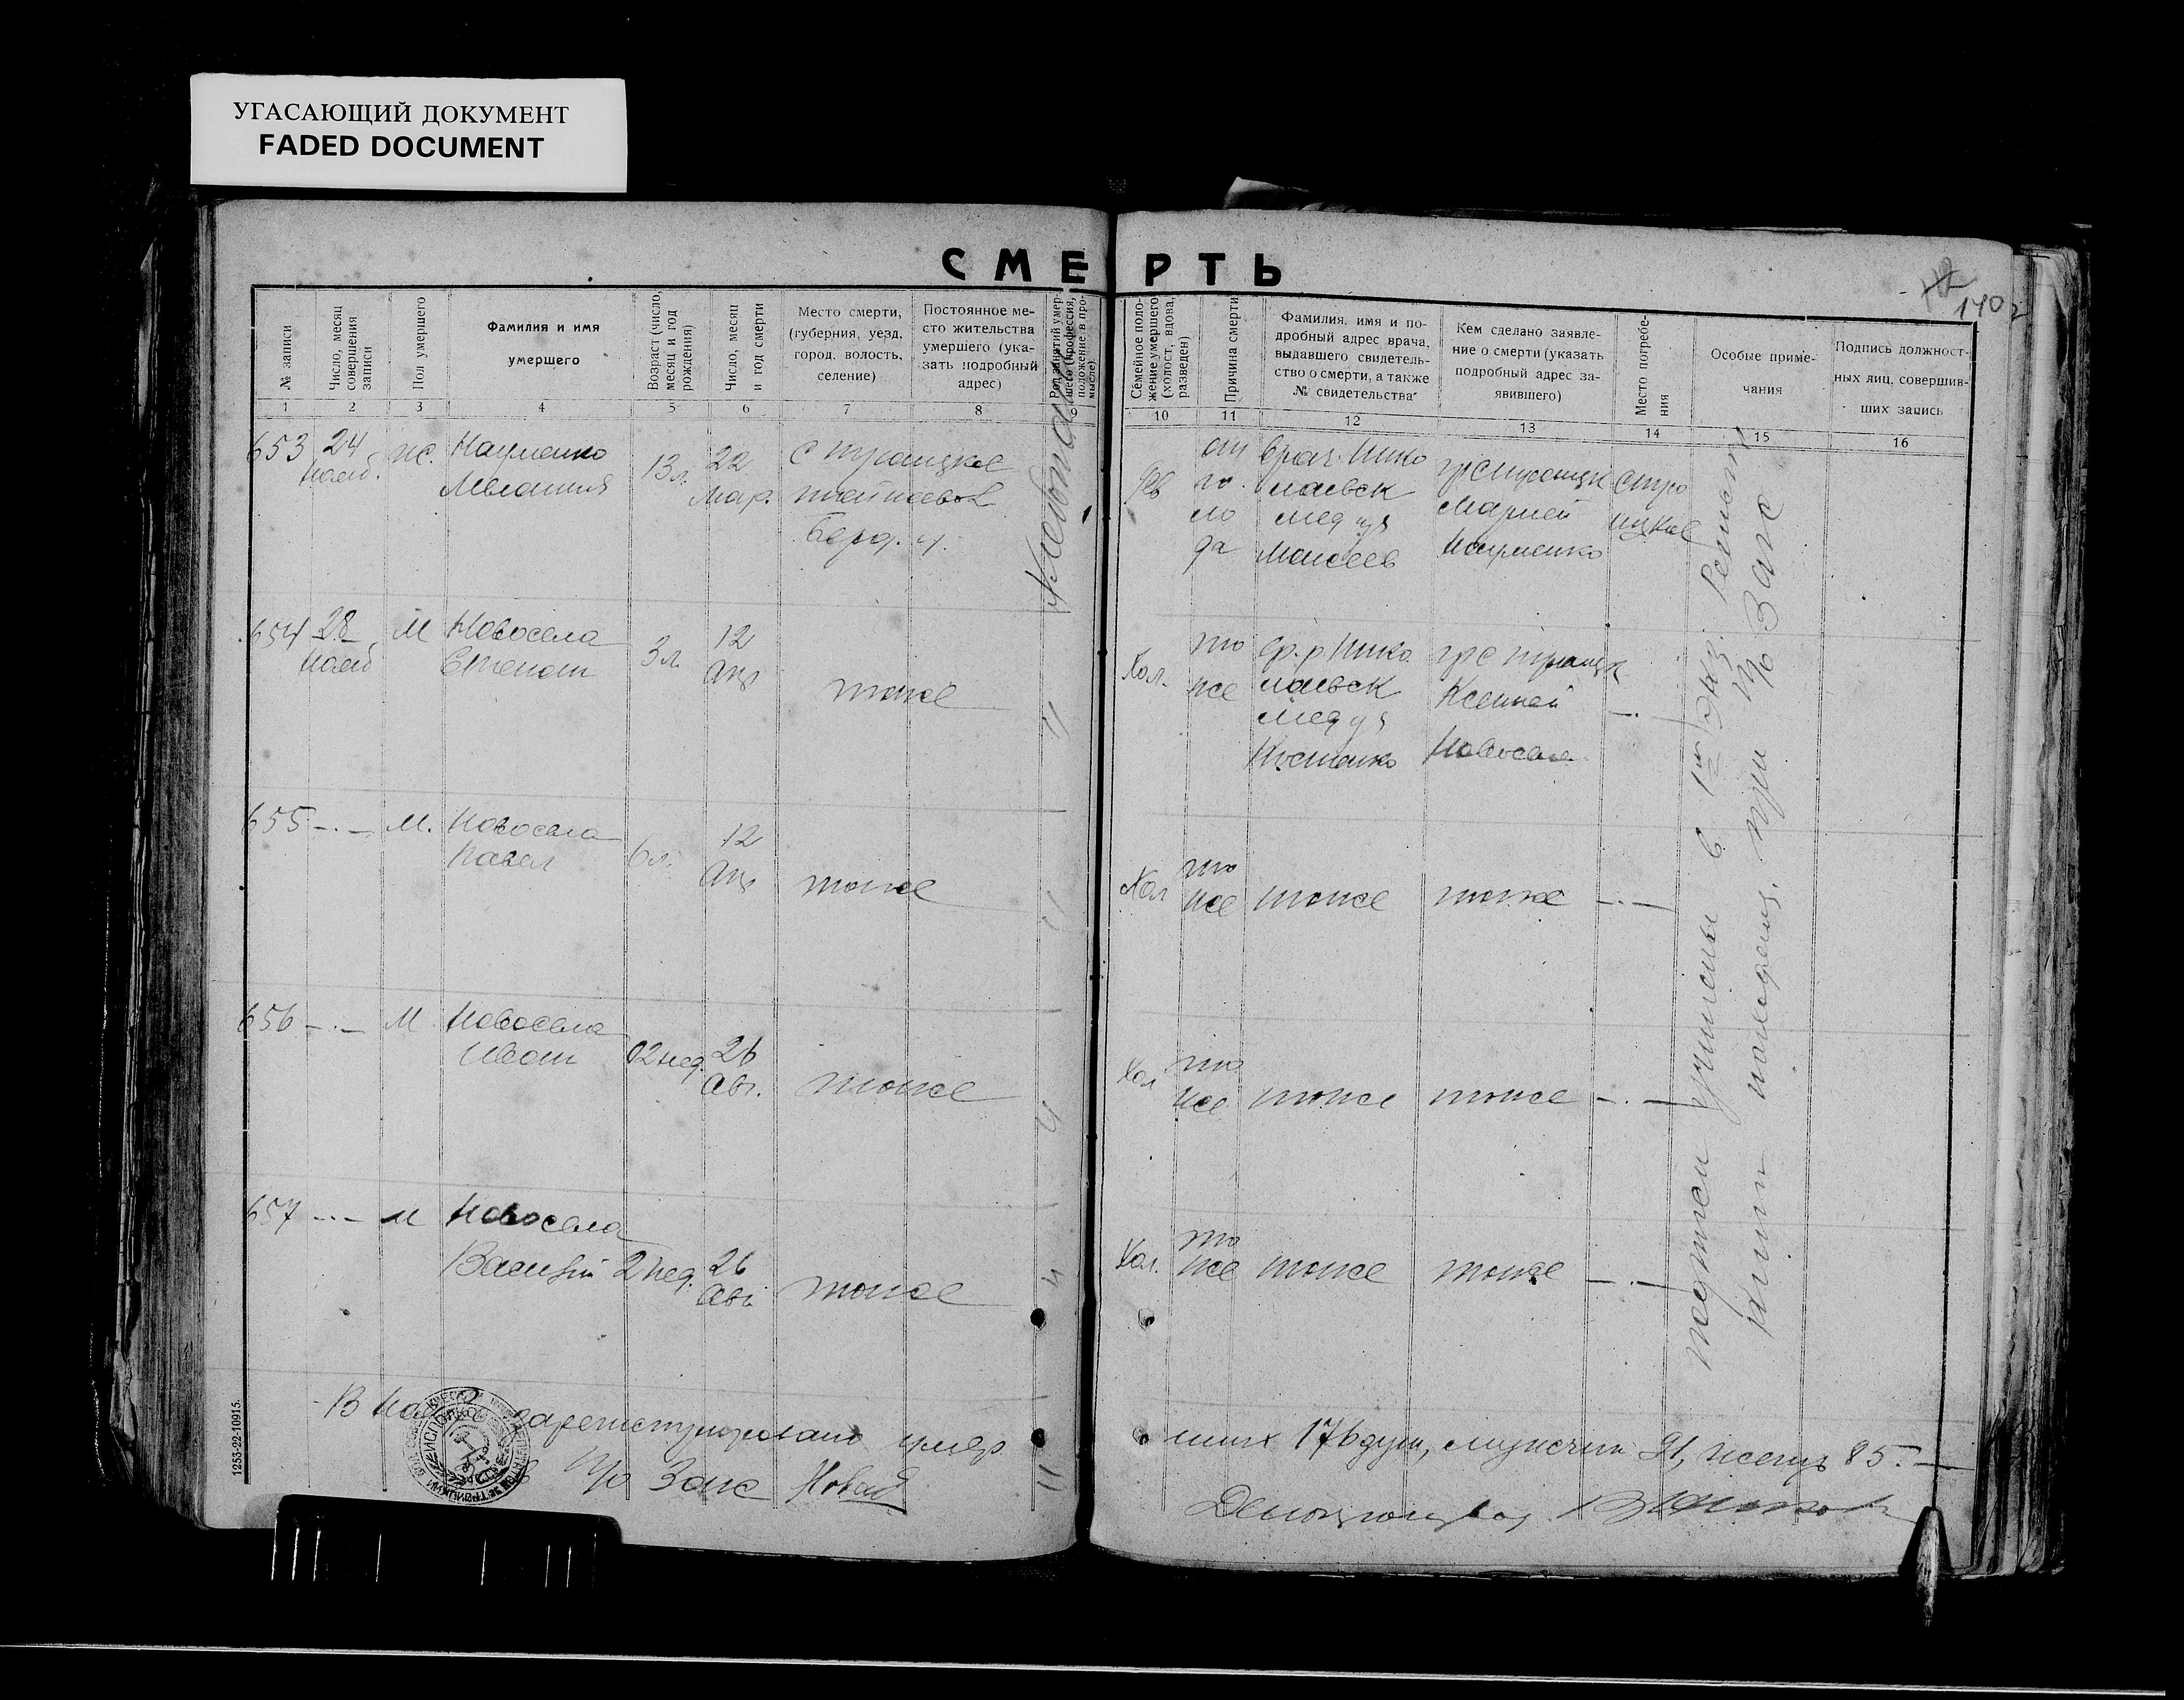 УГАСАЮЩИЙ ДОКУМЕНТ
FADED DOCUMENT
СМЕРТЬ
№ записи
Число, месяц совершения записи
Пол умершего
Фамилия и имя
умершего
Возраст (число, месяц и год рождения)
Число, месяц и год смерти
Место смерти,
(губерния, уезд,
город, волость,
селение)
Постоянное ме-
сто жительства
умершего (ука-
зать подробный
адрес)
Род занятий умер-
шего (профессия,
положение в про-
мысле)
Семейное поло-
жение умершего
(холост, вдова,
разведен)
Причина смерти
Фамилия, имя и по-
дробный адрес врача,
выдавшего свидетель-
ство о смерти, а также
№ свидетельства
Кем сделано заявле-
ние о смерти (указать
подробный адрес за-
явившего)
Место погребе-
ния
Особые приме-
чания
Подпись должност-
ных лиц, совершив-
ших запись
1 2 3 4 5 6 7 8 9
10 11 12 13 14 15 16
140
653 24 нояб. ж. Науменко Мелания 13 л. 22 мар. с Троицкое
Берд. у.
Хлебопаш
дев от го ло да врач Нико лаевск мед уч Моисеев гр с Троицк Марией Науменко с Тро ицкое
654 28 нояб М Новосела Степан 3 л. 12 апр тоже "
Хол. то же ср. р Нико лаевск мед уч Костенко гр с Троицк Ксенией Новосела —.—
655 —.— М. Новосела Павел 6 л. 12 апр тоже "
Хол то же тоже тоже —.—
656 —.— М Новосела Иван 2 нед. 26 авг. тоже "
Хол то же тоже тоже —.—
657 —.— М Новосела Василий 2 нед. 26 авг. тоже "
Хол. то же тоже тоже —.—
при П/о Загс
В нояб зарегистрировано умер
ших 176 душ, мужчин 91, женщ 85.—
П/о Загс
Делопроизвод
1253-22-10915.